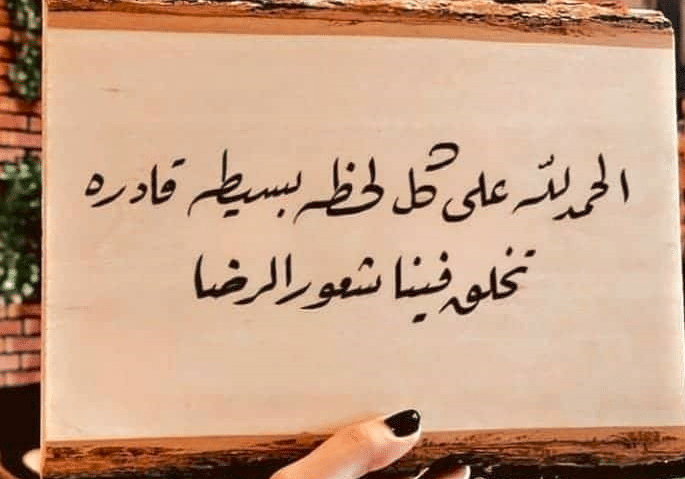 الحمدلله على كل لحظه بسيطه قادره
تخلق فينا شعور الرضا